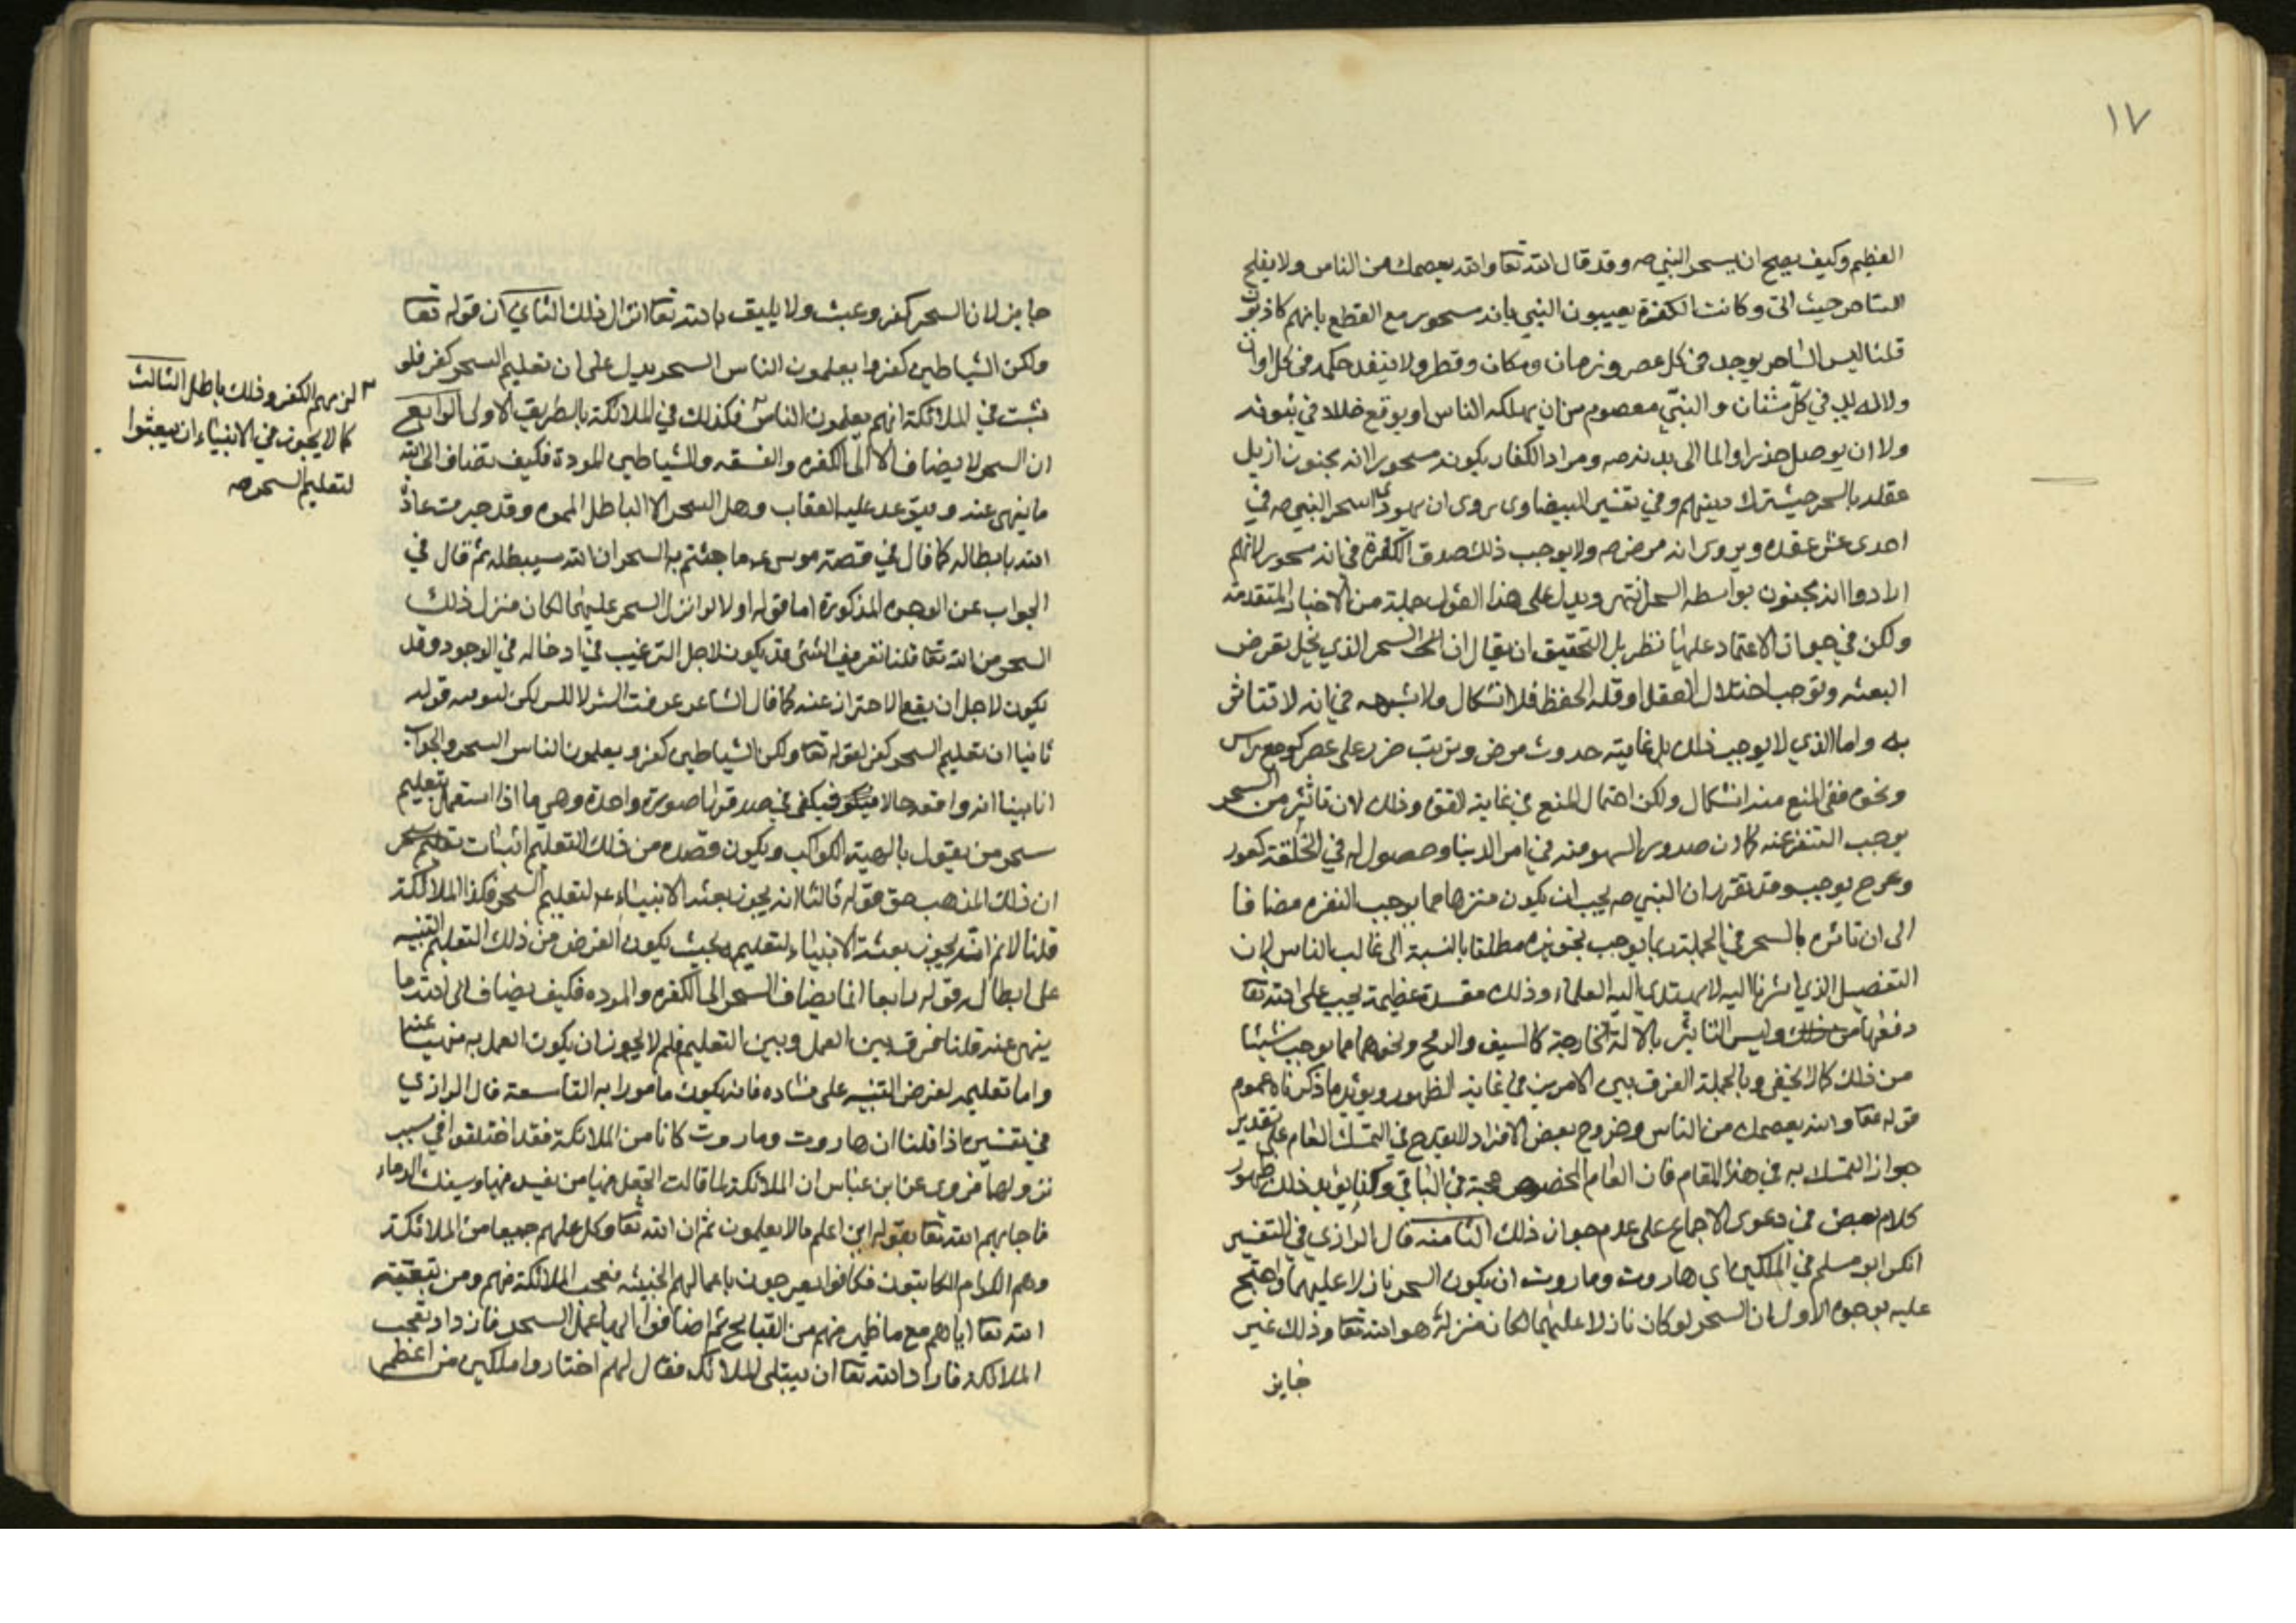 ١٧
العظيم وكيف يصح ان يسحر النبي صه وقد قال الله تعا والله يعصمك من الناس ولا يفلح
الساحر حيث اتى وكانت الكفرة يعيبون النبي بانه مسحور مع القطع بانهم كاذبون
قلنا ليس الساحر يوجد في كل عصر وزمان ومكان وقطر ولا ينفد حكمه في كل اوان
ولا له يد في كل شان والنبي معصوم من ان يهلكه الناس او يوقع خللا في نبوته
ولا ان يوصل ضررا والما الى بدنه صه ومراد الكفار بكونه مسحورا انه مجنون ازيل
عقله بالسحر حيث ترك دينهم وفي تفسير البيضاوى روى ان يهوديا سحر النبي صه في
احدى عشر عقده ويروى انه مرض صه ولا يوجب ذلك صدق الكفرة في انه مسحور لانهم
ارادوا انه مجنون بواسطه السحر انتهى ويدل على هذا القول جملة من الاخبار المتقدمة
ولكن في جواز الاعتماد عليها نظر بل التحقيق ان يقال ان السحر الذي يخل بغرض
البعثه ويوجب اختلال العقل او قله الحفظ فلا اشكال ولا شبهه في انه لا تتاثر
به واما الذي لا يوجب ذلك بل غايته حدوث مرض وترتب ضرر على عضو كوجع راس
ونحوه ففي المنع منه اشكال ولكن احتمال المنع في غاية القوه وذلك لان تاثير من السحر
يوجب التنفر عنه كما ان صدور السهو منه في امر الدنيا وحصول له في الخلقة كعور
وعرج يوجب وقد تقرر ان النبي صه يجب ان يكون منزها مما يوجب النفره مضافا
الى ان تاثره بالسحر في الجملة ربما يوجب تجويزه مطلقا بالنسبة الى غالب الناس لان
التفصيل الذي اشرنا اليه لا يهتدي اليه العلماء وذلك مفسدة عظيمة يجب على الله تعا
دفعها من ذلك وليس التاثير بالالة الخارجة كالسيف والرمح ونحوهما مما يوجب شيئا
من ذلك كما لا يخفى وبالجملة الفرق بين الامرين في غاية الظهور ويؤيد ما ذكرناه عموم
قوله تعا والله يعصمك من الناس وخروج بعض الافراد لا يقدح في التمسك العام على تقدير
جواز التمسك به في هذا المقام فان العام المخصوص حجة في الباقي وكفا يؤيد ذلك ظهور
كلام بعض في دعوى الاجماع على عدم جواز ذلك الثامنه قال الرازي في التفسير
انكر ابو مسلم في الملكين اي هاروت وماروت ان يكون السحر نازلا عليهما واحتج
عليه بوجوه الاول ان السحر لو كان نازلا عليهما لكان منزله هو الله تعا وذلك غير
جايز
جايز لان السحر كفر وعبث ولا يليق بالله تعا انزال ذلك الثاني ان قوله تعا
ولكن الشياطين كفروا يعلمون الناس السحر يدل على ان تعليم السحر كفر فلو
ثبت في الملائكة انهم يعلمون الناس فكذلك في الملائكة بالطريق الاولى الرابع
ان السحر لا يضاف الا الى الكفره والفسقه والشياطين المردة فكيف تضاف الى الله
ما ينهى عنه ويتوعد عليه العقاب وهل السحر الا الباطل المموه وقد جرت عادة
الله بابطاله كما قال في قصة موسى عه ما جئتم به السحر ان الله سيبطله ثم قال في
الجواب عن الوجوه المذكورة اما قوله اولا لو انزل السحر عليهما لكان منزل ذلك
السحر من الله تعا قلنا تعريف الشئ قد يكون لاجل الترغيب في ادخاله في الوجود وقد
يكون لاجل ان يقع الاحتراز عنه كما قال الشاعر عرفت الشر لا للشر لكن لتوقيه قوله
ثانيا ان تعليم السحر كفر لقوله تعا ولكن الشياطين كفروا يعلمون الناس السحر والجواب
انا بينا انه واقعه حال فيكفي في صدقها صورة واحدة وهي ما اذا استعمل بتعليم
سحر من يقول بالهية الكواكب ويكون قصده من ذلك التعليم اثبات
ان ذلك المذهب حق قوله ثالثا انه يجوز بعثه الانبياء عه لتعليم السحر فكذا الملائكة
قلنا لانم انه يجوز بعثة الانبياء لتعليمه بحيث يكون الغرض من ذلك التعليم التنبيه
على ابطاله قوله رابعا انما يضاف السحر الى الكفره والمرده فكيف يضاف الى الله ما
ينهى عنه قلنا فرق بين العمل وبين التعليم فلم لا يجوز ان يكون العمل به منهيا عنه
واما تعليمه لغرض التنبيه على فساده فانه يكون مامورا به التاسعة قال الرازي
في تفسيره اذا قلنا ان هاروت وماروت كانا من الملائكة فقد اختلفوا في سبب
نزولهما فروى عن ابن عباس ان الملائكة لما قالت اتجعل فيها من يفسد فيها ويسفك الدماء
فاجابهم الله تعا بقوله اني اعلم ما لا يعلمون ثم ان الله تعا وكل عليهم جمعا من الملائكة
وهم الكرام الكاتبون فكانوا يعرجون باعمالهم الخبيثه فعجب الملائكة منهم ومن تبقيته
الله تعا اياهم مع ما ظهر منهم من القبايح ثم اضافوا اليها عمل السحر فازداد تعجب
الملائكة فاراد الله تعا ان يبتلى الملائكه فقال لهم اختاروا ملكين من اعظم
لزمهم الكفر وذلك باطل الثالث
كما لا يجوز في الانبياء ان يبعثوا
لتعليم السحر صه